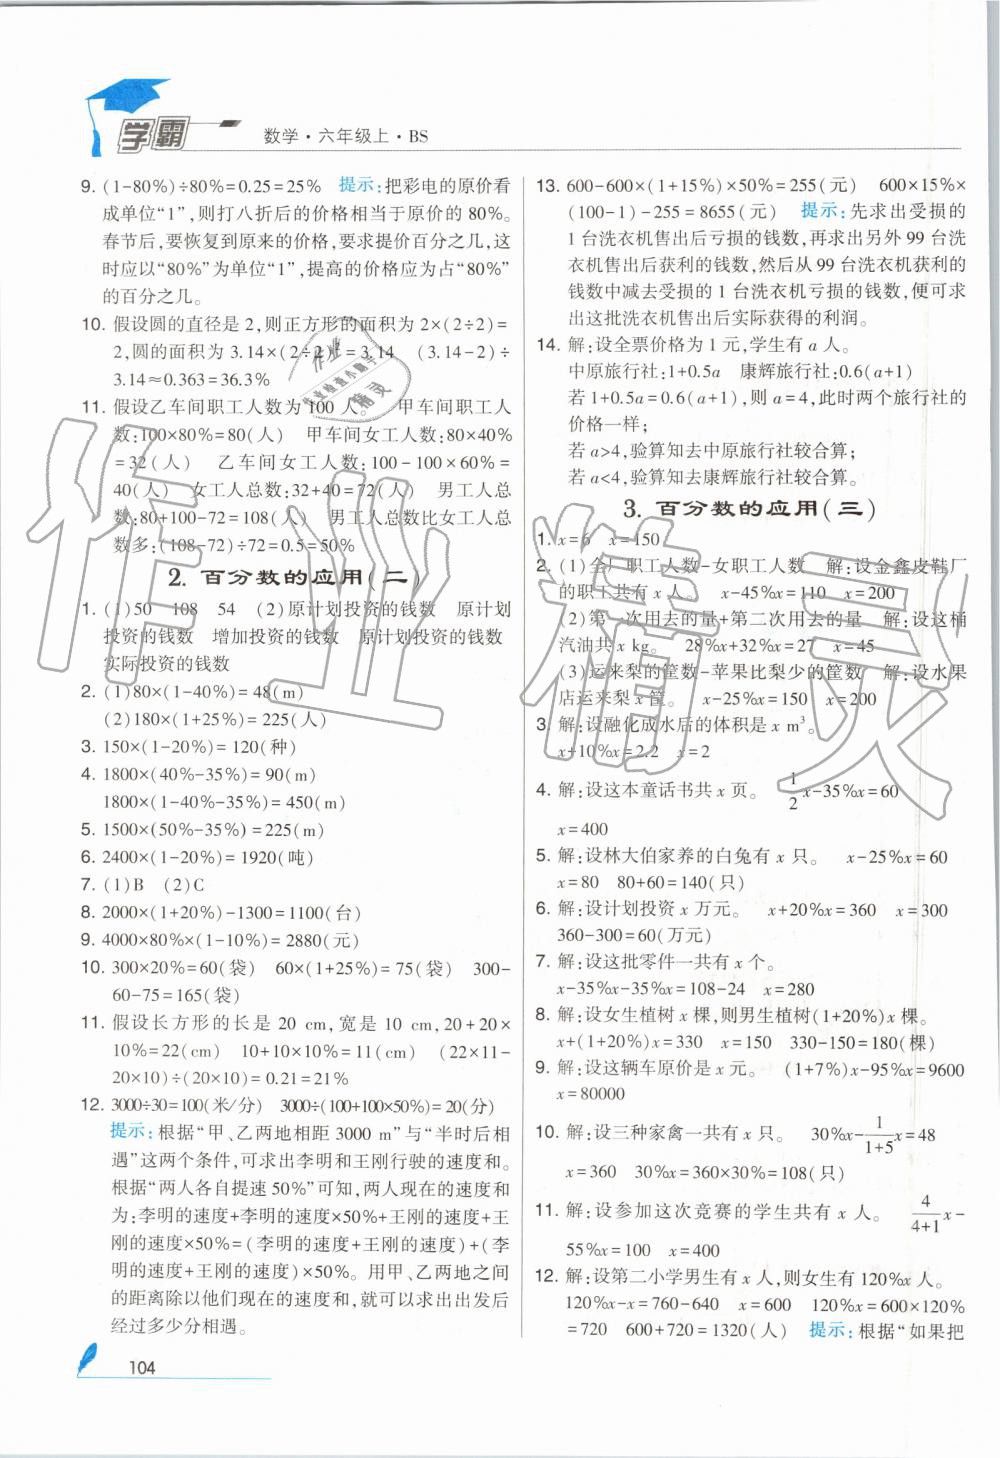 学霸
数学·六年级上·BS
9. (1-80%)÷80%=0.25=25% 提示:把彩电的原价看
成单位“1”,则打八折后的价格相当于原价的 80%。
春节后,要恢复到原来的价格,要求提价百分之几,这
时应以“80%”为单位“1”,提高的价格应为占“80%”
的百分之几。
10. 假设圆的直径是 2,则正方形的面积为 2×(2÷2)=
2,圆的面积为 3.14×(2÷2)²=3.14 (3.14-2)÷
3.14≈0.363=36.3%
11. 假设乙车间职工人数为 100 人。 甲车间职工人
数:100×80%=80(人) 甲车间女工人数:80×40%
=32(人) 乙车间女工人数:100-100×60%=
40(人) 女工人总数:32+40=72(人) 男工人总
数:80+100-72=108(人) 男工人总数比女工人总
数多:(108-72)÷72=0.5=50%
2. 百分数的应用(二)
1. (1)50 108 54 (2)原计划投资的钱数 原计划
投资的钱数 增加投资的钱数 原计划投资的钱数
实际投资的钱数
2. (1)80×(1-40%)=48(m)
(2)180×(1+25%)=225(人)
3. 150×(1-20%)=120(种)
4. 1800×(40%-35%)=90(m)
1800×(1-40%-35%)=450(m)
5. 1500×(50%-35%)=225(m)
6. 2400×(1-20%)=1920(吨)
7. (1)B (2)C
8. 2000×(1+20%)-1300=1100(台)
9. 4000×80%×(1-10%)=2880(元)
10. 300×20%=60(袋) 60×(1+25%)=75(袋) 300-
60-75=165(袋)
11. 假设长方形的长是 20 cm,宽是 10 cm,20+20×
10%=22(cm) 10+10×10%=11(cm) (22×11-
20×10)÷(20×10)=0.21=21%
12. 3000÷30=100(米/分) 3000÷(100+100×50%)=20(分)
提示:根据“甲、乙两地相距 3000 m”与“半时后相
遇”这两个条件,可求出李明和王刚行驶的速度和。
根据“两人各自提速 50%”可知,两人现在的速度和
为:李明的速度+李明的速度×50%+王刚的速度+王
刚的速度×50%=(李明的速度+王刚的速度)+(李
明的速度+王刚的速度)×50%。用甲、乙两地之间
的距离除以他们现在的速度和,就可以求出出发后
经过多少分相遇。
104
13. 600-600×(1+15%)×50%=255(元) 600×15%×
(100-1)-255=8655(元) 提示:先求出受损的
1 台洗衣机售出后亏损的钱数,再求出另外 99 台洗
衣机售出后获利的钱数,然后从 99 台洗衣机获利的
钱数中减去受损的 1 台洗衣机亏损的钱数,便可求
出这批洗衣机售出后实际获得的利润。
14. 解:设全票价格为 1 元,学生有 a 人。
中原旅行社:1+0.5a 康辉旅行社:0.6(a+1)
若 1+0.5a=0.6(a+1),则 a=4,此时两个旅行社的
价格一样;
若 a>4,验算知去中原旅行社较合算;
若 a<4,验算知去康辉旅行社较合算。
3. 百分数的应用(三)
1. x=6 x=150
2. (1)全厂职工人数-女职工人数 解:设金鑫皮鞋厂
的职工共有 x 人。 x-45%x=110 x=200
(2)第一次用去的量+第二次用去的量 解:设这桶
汽油共 x kg。 28%x+32%x=27 x=45
(3)运来梨的筐数-苹果比梨少的筐数 解:设水果
店运来梨 x 筐。 x-25%x=150 x=200
3. 解:设融化成水后的体积是 x m³。
x+10%x=2.2 x=2
4. 解:设这本童话书共 x 页。 1/2x-35%x=60
x=400
5. 解:设林大伯家养的白兔有 x 只。 x-25%x=60
x=80 80+60=140(只)
6. 解:设计划投资 x 万元。 x+20%x=360 x=300
360-300=60(万元)
7. 解:设这批零件一共有 x 个。
x-35%x-35%x=108-24 x=280
8. 解:设女生植树 x 棵,则男生植树(1+20%)x 棵。
x+(1+20%)x=330 x=150 330-150=180(棵)
9. 解:设这辆车原价是 x 元。 (1+7%)x-95%x=9600
x=80000
10. 解:设三种家禽一共有 x 只。 30%x-1/(1+5)x=48
x=360 30%x=360×30%=108(只)
11. 解:设参加这次竞赛的学生共有 x 人。 4/(4+1)x-
55%x=100 x=400
12. 解:设第二小学男生有 x 人,则女生有 120%x 人。
120%x-x=760-640 x=600 120%x=600×120%
=720 600+720=1320(人) 提示:根据“如果把
作业精灵